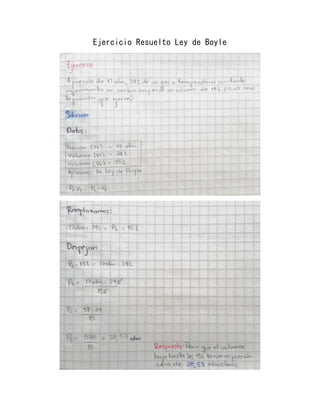 Ejercicio Resuelto Ley de Boyle
Ejercicio
A presión de 17 atm, 34 L de un gas a temperatura constante
experimenta un cambio ocupando un volumen de 15 L ¿Cuál será
la presión que ejerce?
Solución
Datos:
= 17 atm
Volumen (V₁) = 34 L
Volumen (V₂) = 15 L
la Ley de Boyle
P₁·V₁ = P₂·V₂
Reemplazamos:
17 atm · 34 L = P₂ · 15 L
Despejar:
P₂ · 15 L = 17 atm · 34 L
P₂ = 17 atm · 34 L
15 L
P₂ = 17 · 34
15
P₂ = 578 = 38,53 atm
15
Respuesta: Para que el volumen
baje hasta los 15 L la nueva presión
sería de 38,53 atmósferas.